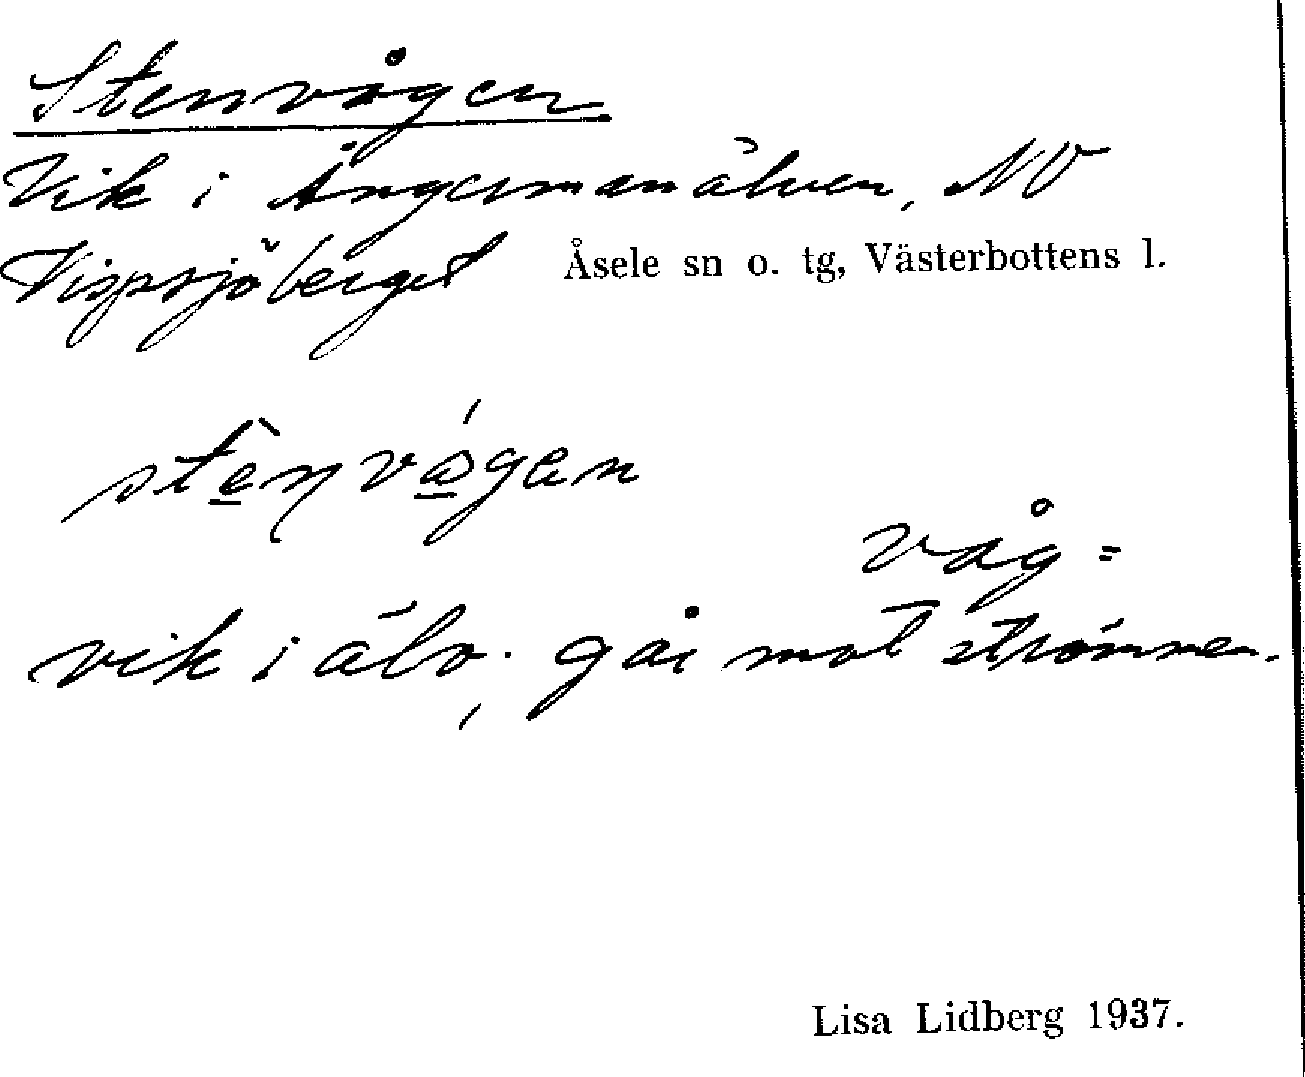 Stenvågen
Vik i Ångermanälven, NV
Vispsjöberget
Åsele sn o. tg, Västerbottens l.
stè̱ŋvá̱gɐn
våg =
vik i älv, går mot strömmen.
Lisa Lidberg 1937.